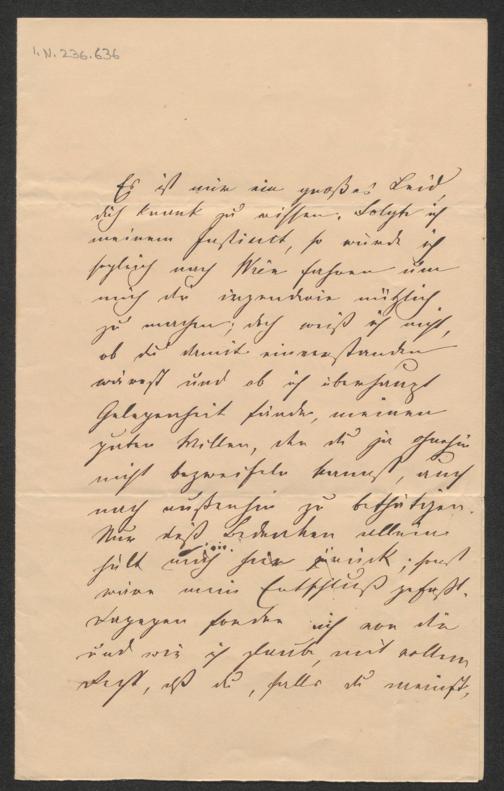 I.N. 236.636
Es ist mir ein großes Leid,
dich krank zu wissen. Folgte ich
meinem Instinct, so würde ich
sogleich nach Wien fahren um
mich dir irgendwie nützlich
zu machen; doch weiß ich nicht,
ob du damit einverstanden
wärest und ob ich überhaupt
Gelegenheit fände, meinen
guten Willen, den du ja ohnehin
nicht bezweifeln kannst, auch
nach außenhin zu bethätigen.
Nur dieß Bedenken allein
hält mich hier zurück; sonst
wäre mein Entschluß gefaßt.
Dagegen fordre ich von dir
und wie ich glaube, mit vollem
Recht, daß du, falls du meinst,